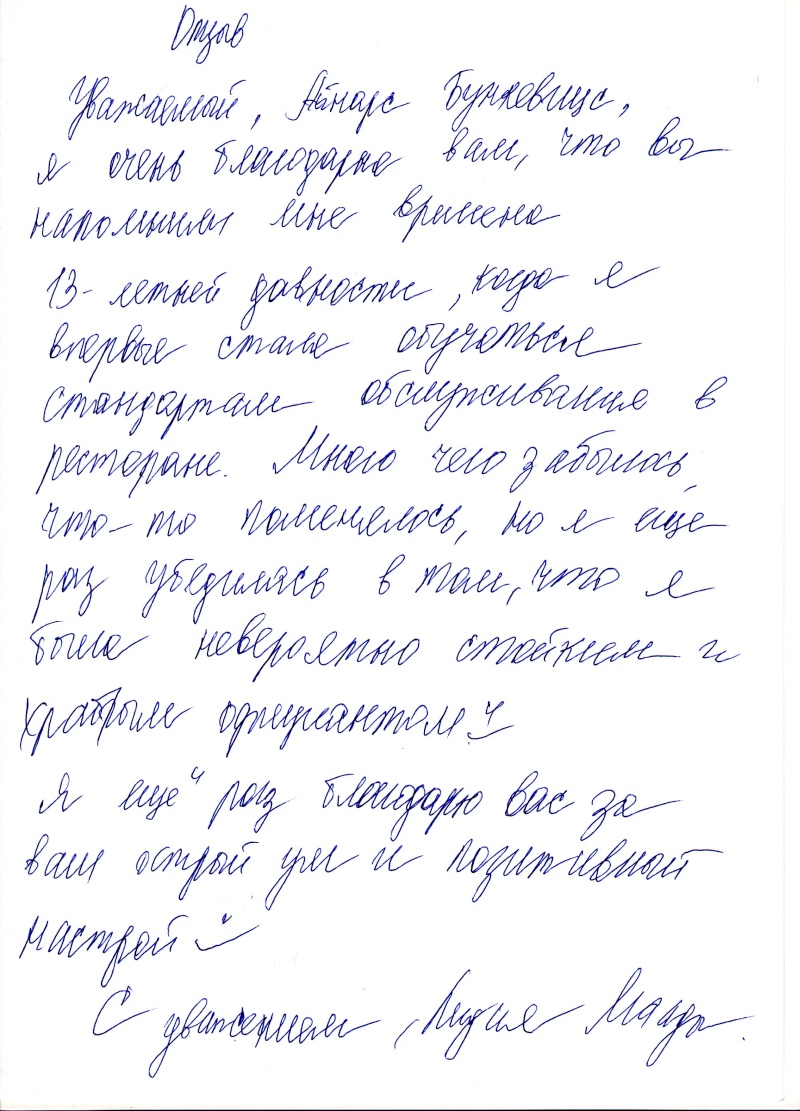 Отзыв
Уважаемый, Айнарс Бункевицс,
я очень благодарна вам, что вы
напомнили мне времена
13-летней давности, когда я
впервые стала обучаться
стандартам обслуживания в
ресторане. Много чего забылось,
что-то поменялось, но я еще
раз убедилась в том, что я
была невероятно стойким и
храбрым официантом
Я еще раз благодарю вас за
ваш острый ум и позитивный
настрой
С уважением, Лидия